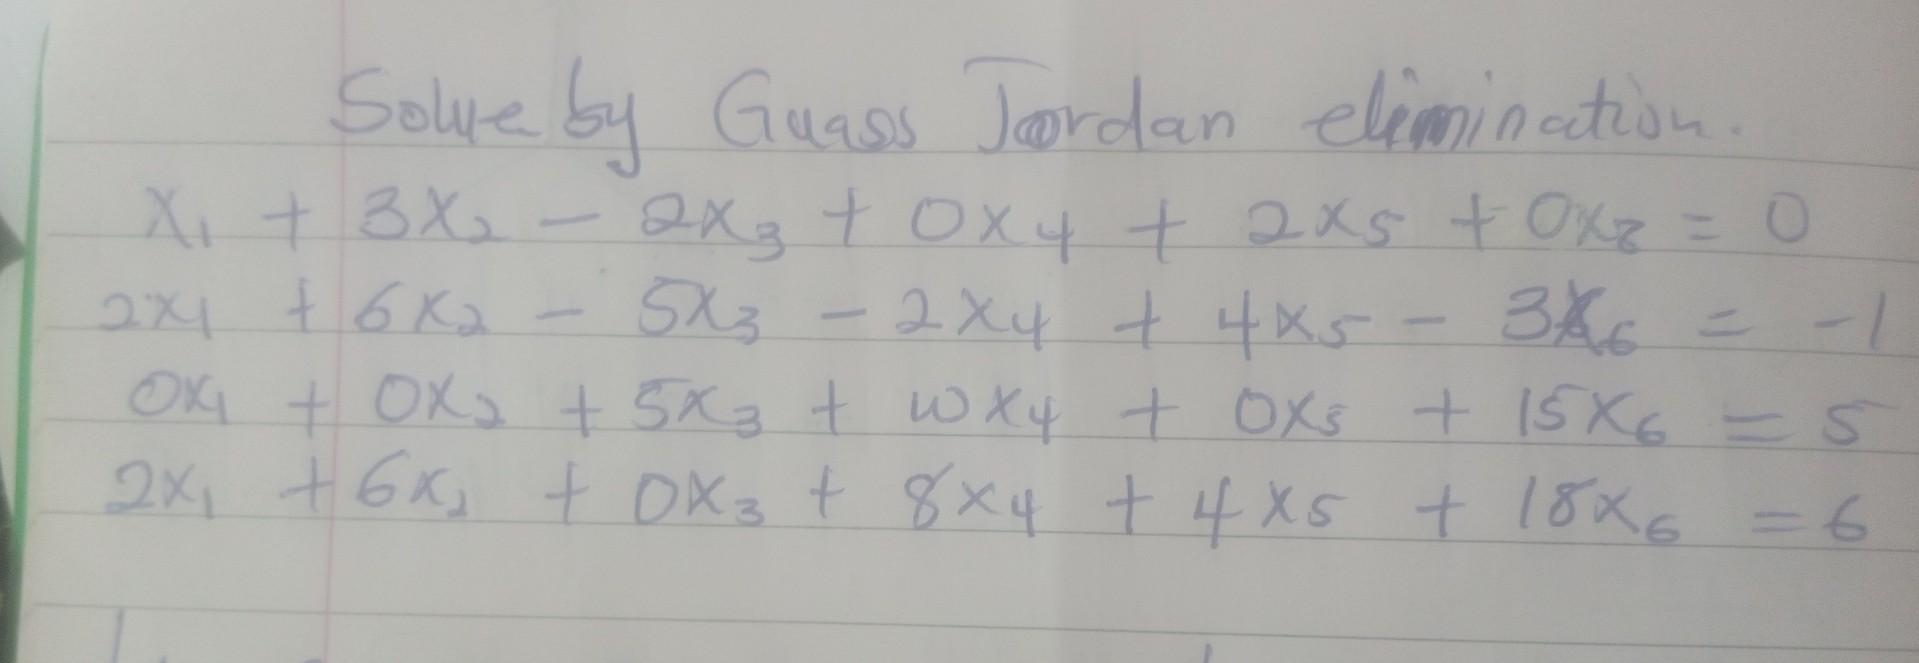 Solve by Guass Jordan elimination.
x₁ + 3x₂ - 2x₃ + 0x₄ + 2x₅ + 0x₈ = 0
2x₁ + 6x₂ - 5x₃ - 2x₄ + 4x₅ - 3x₆ = -1
0x₁ + 0x₂ + 5x₃ + 10x₄ + 0x₅ + 15x₆ = 5
2x₁ + 6x₂ + 0x₃ + 8x₄ + 4x₅ + 18x₆ = 6